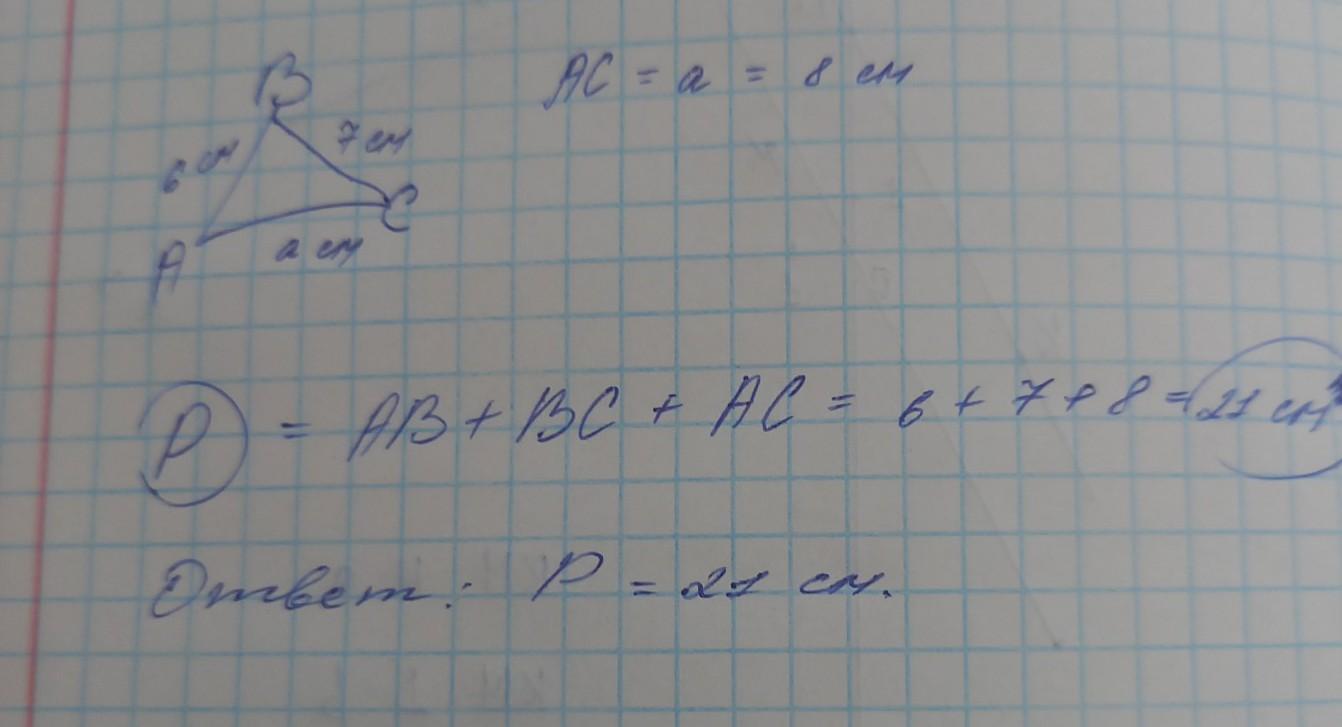 B
AC = a = 8 см
6 см
7 см
A
C
a см
P = AB + BC + AC = 6 + 7 + 8 = 21 см
Ответ: P = 21 см.